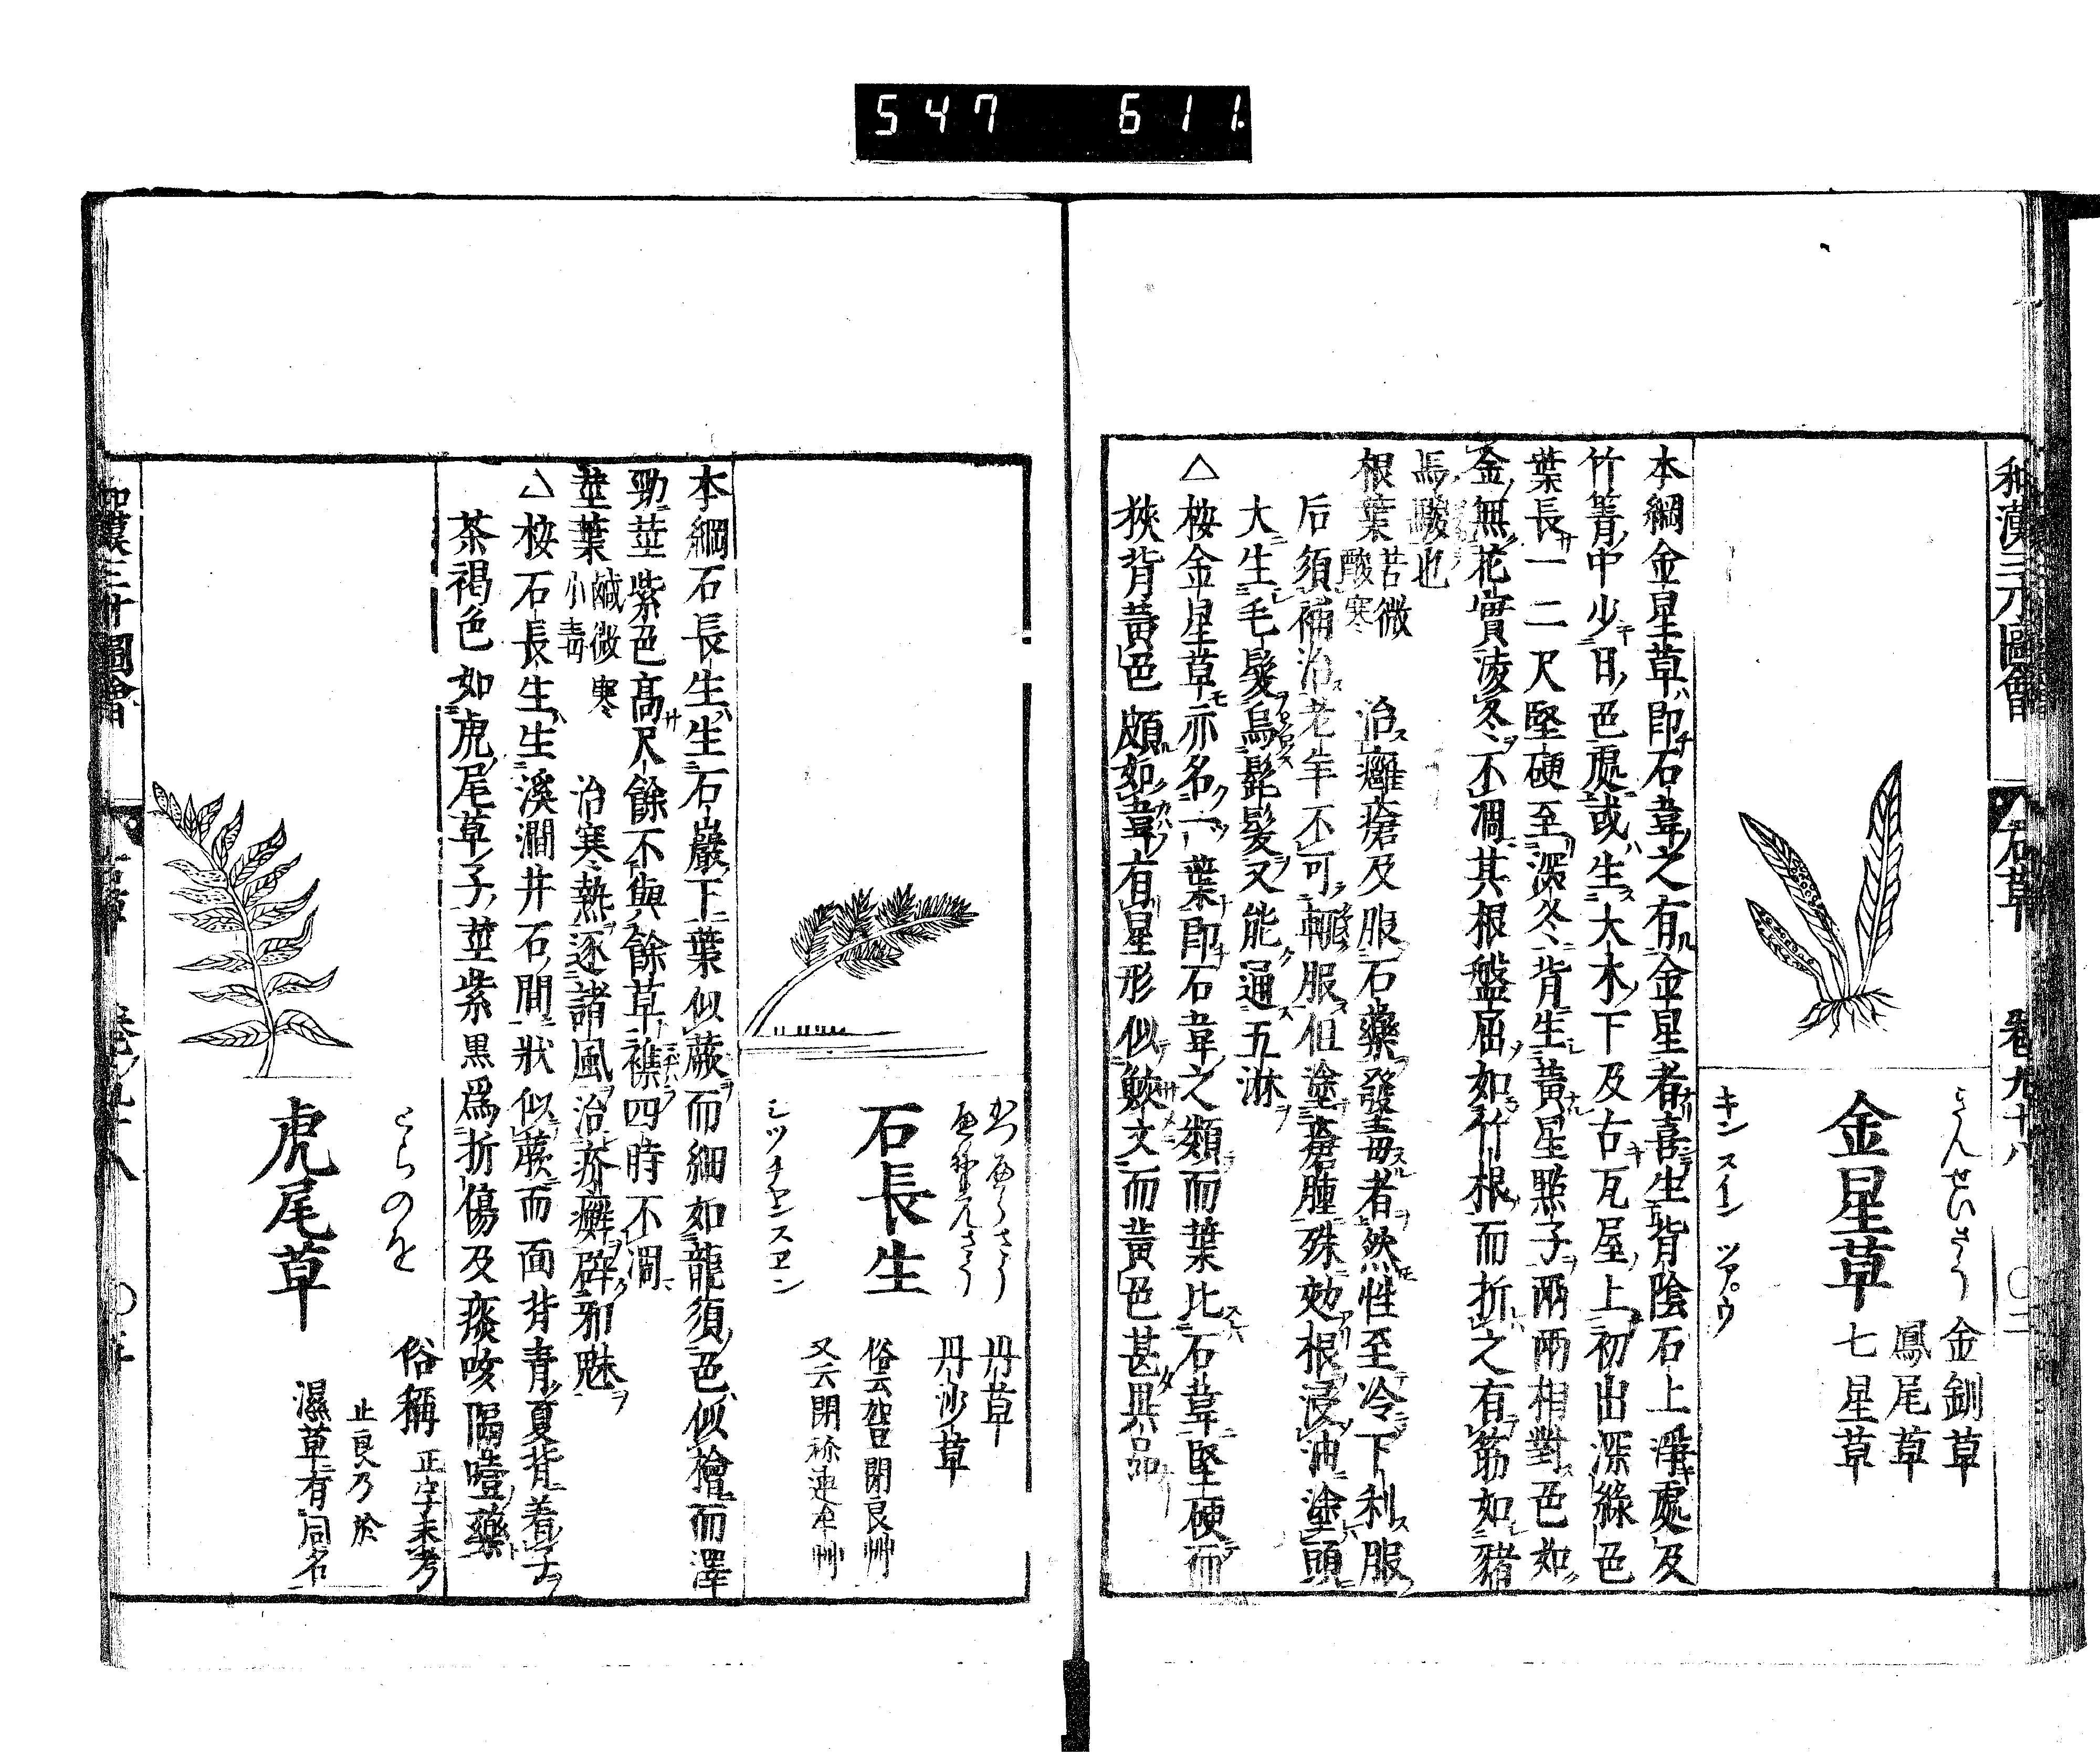 547 611
和漢三才圖會 石草 卷九十八 〇二
きんせいさう
金星草
キンスイン ツア゜ウ
金釧草
鳳尾草
七星草
本綱金星草即石韋之有金星者喜生背陰石上淨處及
竹箐中少日色處或生大木下及古瓦屋上初出深綠色
葉長一二尺堅硬至深冬背生黃星點子兩兩相對色如
金無花實凌冬不凋其根盤屈如竹根而折之有筋如豬
馬騣也
根葉 苦微酸寒 治癰瘡及服石藥發毒者然性至冷下利服
后須補治老年不可輒服但塗瘡腫殊効根浸油塗頭
大生毛髮烏髭髮又能通五淋
△桉金星草亦名一葉即石韋之類而葉比石韋堅硬而
狹背黃色頗如韋有星形似鮫文而黃色甚異品
石長生
シツチヤンスヱン
丹草
丹沙草
俗云賀閉良艸
本綱石長生生石巖下葉似蕨而細如龍須色似檜而澤
勁莖紫色高尺餘不與餘草襍四時不凋
莖葉 鹹微寒小毒 治寒熱逐諸風治疥癬辟邪魅
△桉石長生生溪澗井石間狀似蕨而面背青夏背着子
茶褐色如虎尾草子莖紫黒爲折傷及痰咳隔噎藥
とらのを
虎尾草
俗稱 正字未考
止良乃於
濕草有同名
和漢三才圖會